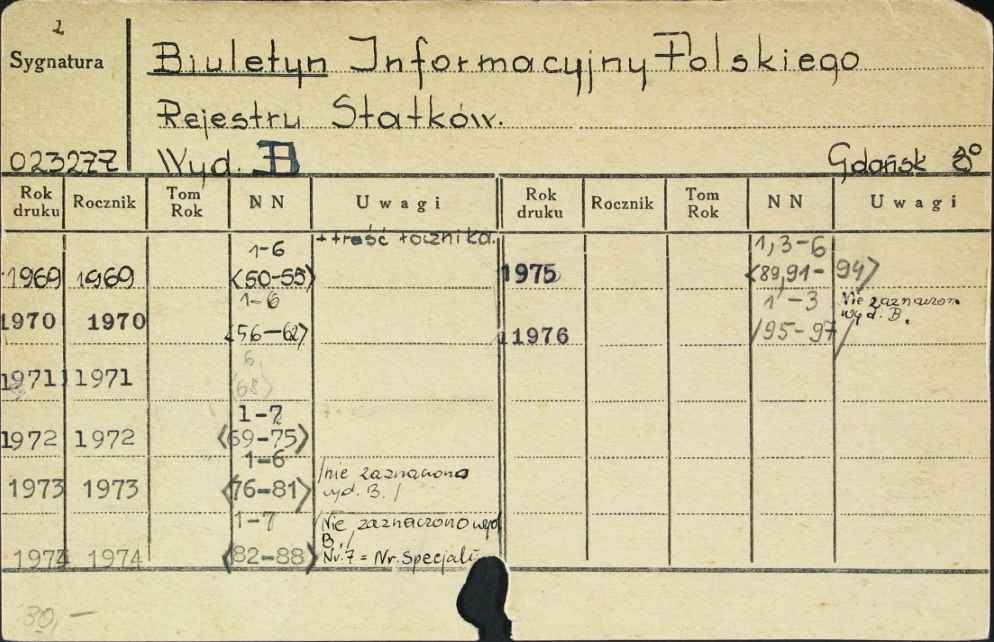 2
Sygnatura
Biuletyn Informacyjny Polskiego
Rejestru Statków.
023277 Wyd. B Gdańsk 8°
Rok druku Rocznik Tom Rok N N Uwagi Rok druku Rocznik Tom Rok N N Uwagi
1-6 + treść rocznika. 1,3-6
1969 1969 <50-55> 1975 <89,91-94>
1-6 1-3 Nie zaznaczono wyd. B.
1970 1970 <56-62> 1976 /95-97/
6
1971 1971 <68>
1-7
1972 1972 <69-75>
1-6 /nie zaznaczono
1973 1973 <76-81> wyd. B./
1-7 /Nie zaznaczono wyd.
B./
1974 1974 <82-88> Nr.7 = Nr. specjaln
30,-